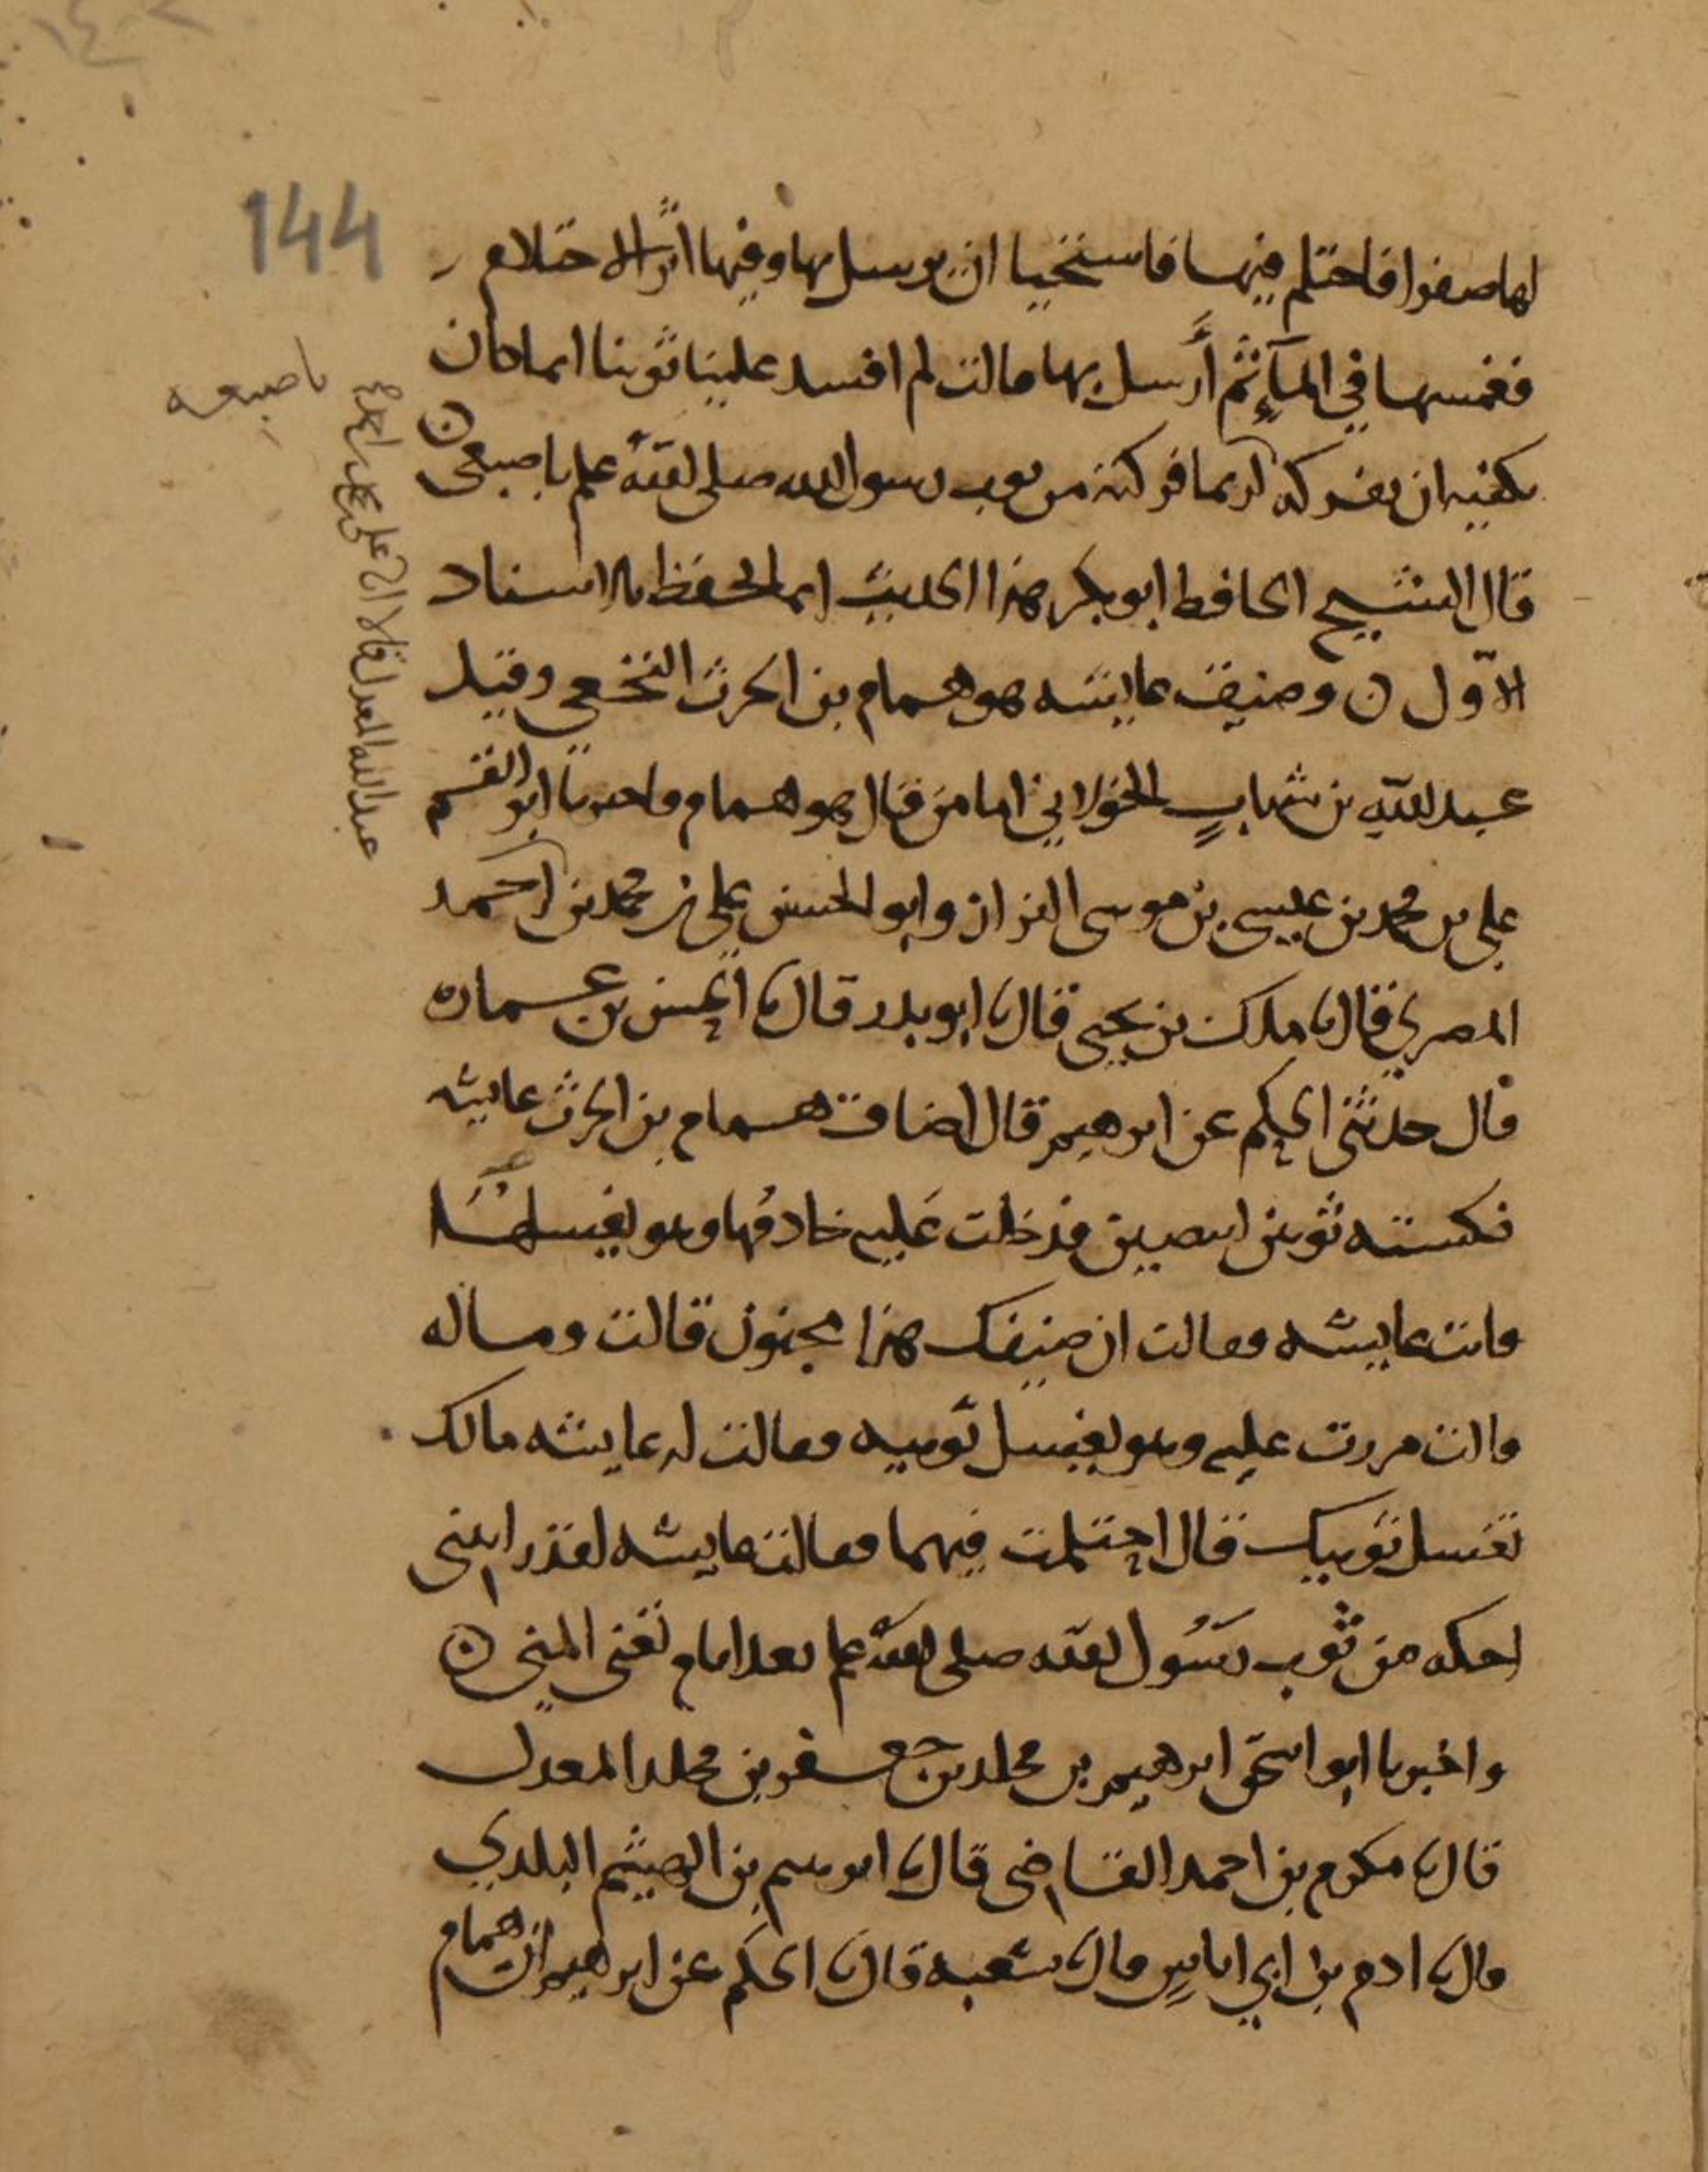 144
لها صفرا فاحتلم فيها فاستحيا ان يرسل بها وفيها اثر الاحتلام
فغمسها في المآء ثم أرسل بها فقالت لم افسد علينا ثوبنا انما كان
يكفيه ان يفركه ربما فركته من ثوب رسول الله صلى الله عليه باصبعي
باصبعه
قال الشيخ الحافظ ابو بكر هذا الحديث انما يحفظ بالاسناد
الاول ن وضيف عايشه هو همام بن الحرث النخعي وقيل
عبد الله بن شهاب الخولاني اما من قال هو همام فاخبرنا ابو القسم
علي بن محمد بن عيسى بن موسى البزاز وابو الحسين علي بن محمد بن
عبد الله المعدل قالا انا علي بن محمد بن احمد
احمد
المصري قال نا ملك بن يحيى قال نا ابو بدر قال نا الحسن بن عماره
قال حدثني الحكم عن ابرهيم قال اضافت همام بن الحرث عايشه
فكسته ثوبين ابيضين فدخلت عليه خادمها وهو يغسلهما
فاتت عايشه فقالت ان ضيفك هذا مجنون قالت وما له
قالت مررت عليه وهو يغسل ثوبيه فقالت له عايشه مالك
تغسل ثوبيك قال احتلمت فيهما فقالت عايشه لقد رايتني
احكه من ثوب رسول الله صلى الله عليه بعد ايام تعني المني ن
واخبرنا ابو اسحق ابرهيم بن مخلد بن جعفر بن مخلد المعدل
قال نا مكرم بن احمد القاضي قال نا ابرهيم بن الهيثم البلدي
قال نا ادم بن ابي اياس قال نا شعبه قال نا الحكم عن ابرهيم ان همام